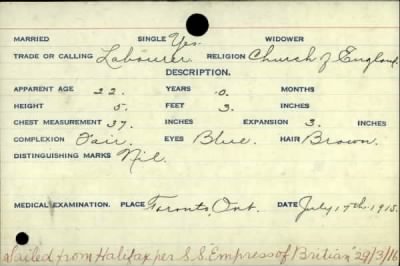 MARRIED SINGLE Yes. WIDOWER
TRADE OR CALLING Labourer. RELIGION Church of England
DESCRIPTION.
APPARENT AGE 22. YEARS 0. MONTHS
HEIGHT 5. FEET 3. INCHES
CHEST MEASUREMENT 37. INCHES EXPANSION 3. INCHES
COMPLEXION Fair. EYES Blue. HAIR Brown.
DISTINGUISHING MARKS Nil.
MEDICAL EXAMINATION. PLACE Toronto, Ont. DATE July 17th. 1915.
Sailed from Halifax per S.S. Empress of Britian" 29/3/16